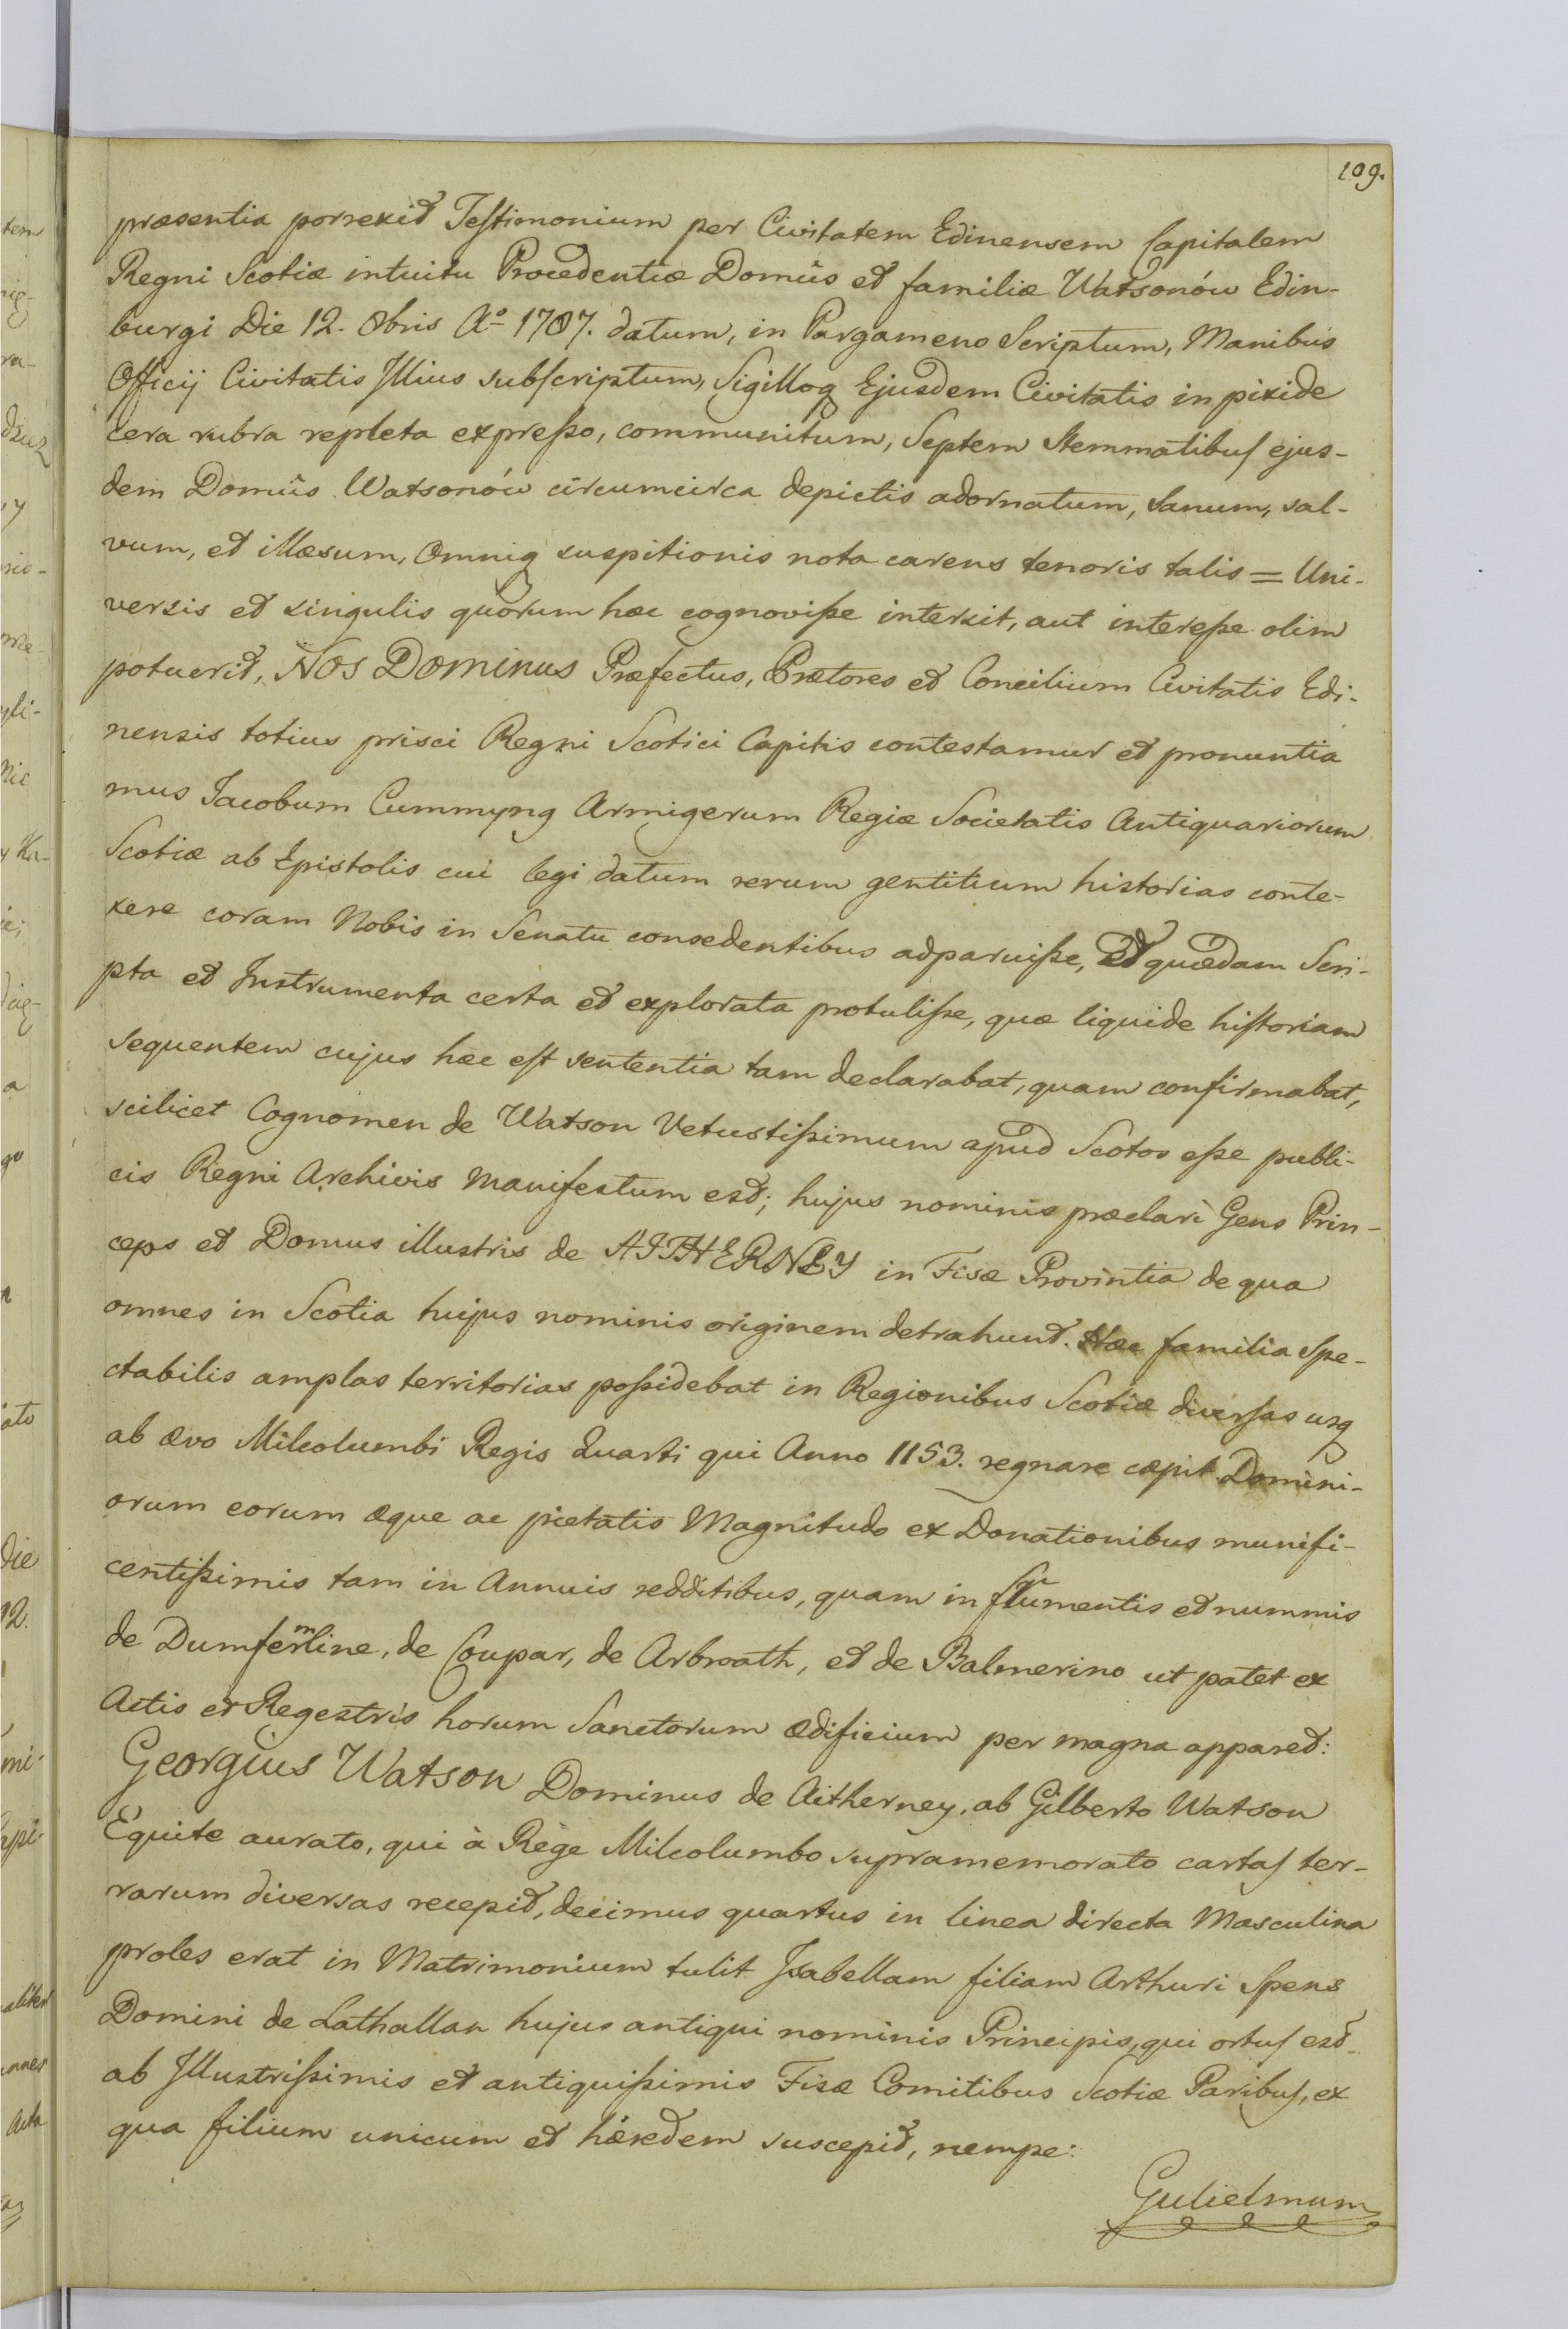 109.
præsentia porrexit Testimonium per Civitatem Edinensem Capitalem
Regni Scotiæ intuitu Procedentiæ Domûs et familiæ Watsonów Edin-
burgi Die 12. 8bris Aº 1787. datum, in Pargameno Scriptum, Manibus
Officij Civitatis Illius subscriptum, Sigilloq Ejusdem Civitatis in pixide
cera rubra repleta expresso, communitum, Septem Stemmatibus ejus-
dem Domûs Watsonów circumcirca depictis adornatum, Sanum, sal-
vum, et illæsum, Omniq suspitionis nota carens tenoris talis = Uni-
versis et singulis quorum hæc cognovisse intersit, aut interesse olim
potuerit, Nos Dominus Præfectus, Prætores et Concilium Civitatis Edi-
nensis totius prisci Regni Scotici Capitis contestamur et pronuntia
mus Jacobum Cummyng Armigerum Regiæ Societatis Antiquariorum
Scotiæ ab Epistolis cui legi datum rerum gentitium historias conte-
xere coram Nobis in Senatu consedentibus adparuisse, Et quædam Scri-
pta et Instrumenta certa et explorata protulisse, quæ liquide historiam
sequentem cujus hæc est sententia tam declarabat, quam confirmabat,
scilicet Cognomen de Watson Vetustissimum apud Scotos esse publi-
cis Regni Archivis Manifestum est; hujus nominis præclari Gens Prin-
ceps et Domus illustris de AITHERNEY in Fisæ Provintia de qua
omnes in Scotia hujus nominis originem detrahunt. Hæc familia Spe-
ctabilis amplas territorias possidebat in Regionibus Scotiæ diversas usq
ab ævo Milcolumbi Regis Quarti qui Anno 1153. regnare cæpit Domini-
orum eorum æque ac pietatis Magnitudo ex Donationibus munifi-
centissimis tam in Annuis redditibus, quam in frumentis et nummis
de Dumfermline, de Coupar, de Arbroath, et de Balmerino ut patet ex
Actis et Regestris horum Sanctorum ædificium per magna apparet:
Georgius Watson Dominus de Aitherney, ab Gilberto Watson
Equite aurato, qui à Rege Milcolumbo supramemorato cartas ter-
rarum diversas recepit, decimus quartus in linea directa Masculina
proles erat in Matrimonium tulit Isabellam filiam Arthuri Spens
Domini de Lathallan hujus antiqui nominis Principis, qui ortus est
ab Illustrissimis et antiquissimis Fisæ Comitibus Scotiæ Paribus, ex
qua filium unicum et hæredem suscepit, nempe:
Gulielmum